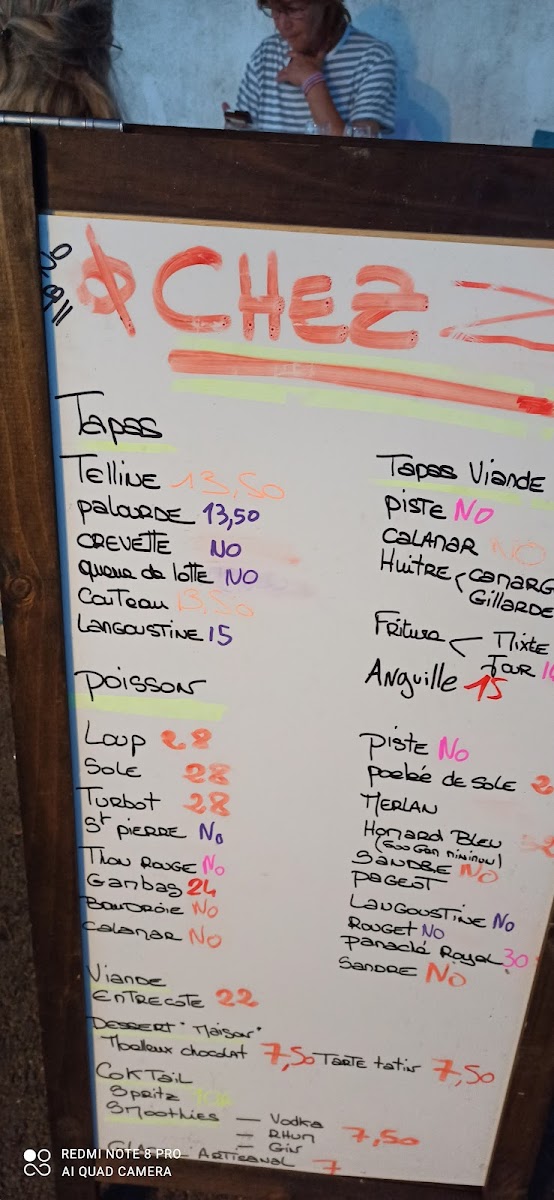 CHEZ
Tapas
Telline 13,50
Palourde 13,50
Crevette NO
Queue de lotte NO
Couteau 13,50
Langoustine 15
Tapas Viande
Piste NO
Calamar NO
Huître
Camarg
Gillarde
Friture
Mixte
Jour
Anguille 15
Poisson
Loup 28
Sole 28
Turbot 28
St Pierre No
Thon Rouge No
Gambas 24
Baudroie No
Calamar No
Piste No
Poelée de sole
Merlan
Homard Bleu
(600 Gr minimum)
No
Pageot
Langoustine No
Rouget No
Panaché Royal 30
Sandre No
Viande
Entrecote 22
Dessert "Maison"
Moelleux chocolat 7,50 Tarte tatin 7,50
Coktail
Spritz
Smoothies — Vodka
— Rhum 7,50
— Gin
Artisanal 7
REDMI NOTE 8 PRO
AI QUAD CAMERA